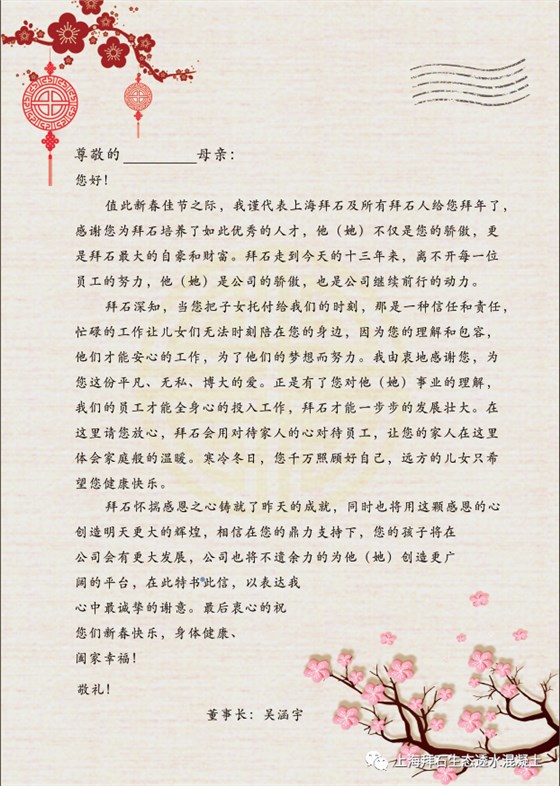 尊敬的__________母亲：
您好！
值此新春佳节之际，我谨代表上海拜石及所有拜石人给您拜年了，
感谢您为拜石培养了如此优秀的人才，他（她）不仅是您的骄傲，更
是拜石最大的自豪和财富。拜石走到今天的十三年来，离不开每一位
员工的努力，他（她）是公司的骄傲，也是公司继续前行的动力。
拜石深知，当您把子女托付给我们的时刻，那是一种信任和责任，
忙碌的工作让儿女们无法时刻陪在您的身边，因为您的理解和包容，
他们才能安心的工作，为了他们的梦想而努力。我由衷地感谢您，为
您这份平凡、无私、博大的爱。正是有了您对他（她）事业的理解，
我们的员工才能全身心的投入工作，拜石才能一步步的发展壮大。在
这里请您放心，拜石会用对待家人的心对待员工，让您的家人在这里
体会家庭般的温暖。寒冷冬日，您千万照顾好自己，远方的儿女只希
望您健康快乐。
拜石怀揣感恩之心铸就了昨天的成就，同时也将用这颗感恩的心
创造明天更大的辉煌，相信在您的鼎力支持下，您的孩子将在
公司会有更大发展，公司也将不遗余力的为他（她）创造更广
阔的平台，在此特书此信，以表达我
心中最诚挚的谢意。最后衷心的祝
您们新春快乐，身体健康、
阖家幸福！
敬礼！
董事长：吴涵宇
上海拜石生态透水混凝土